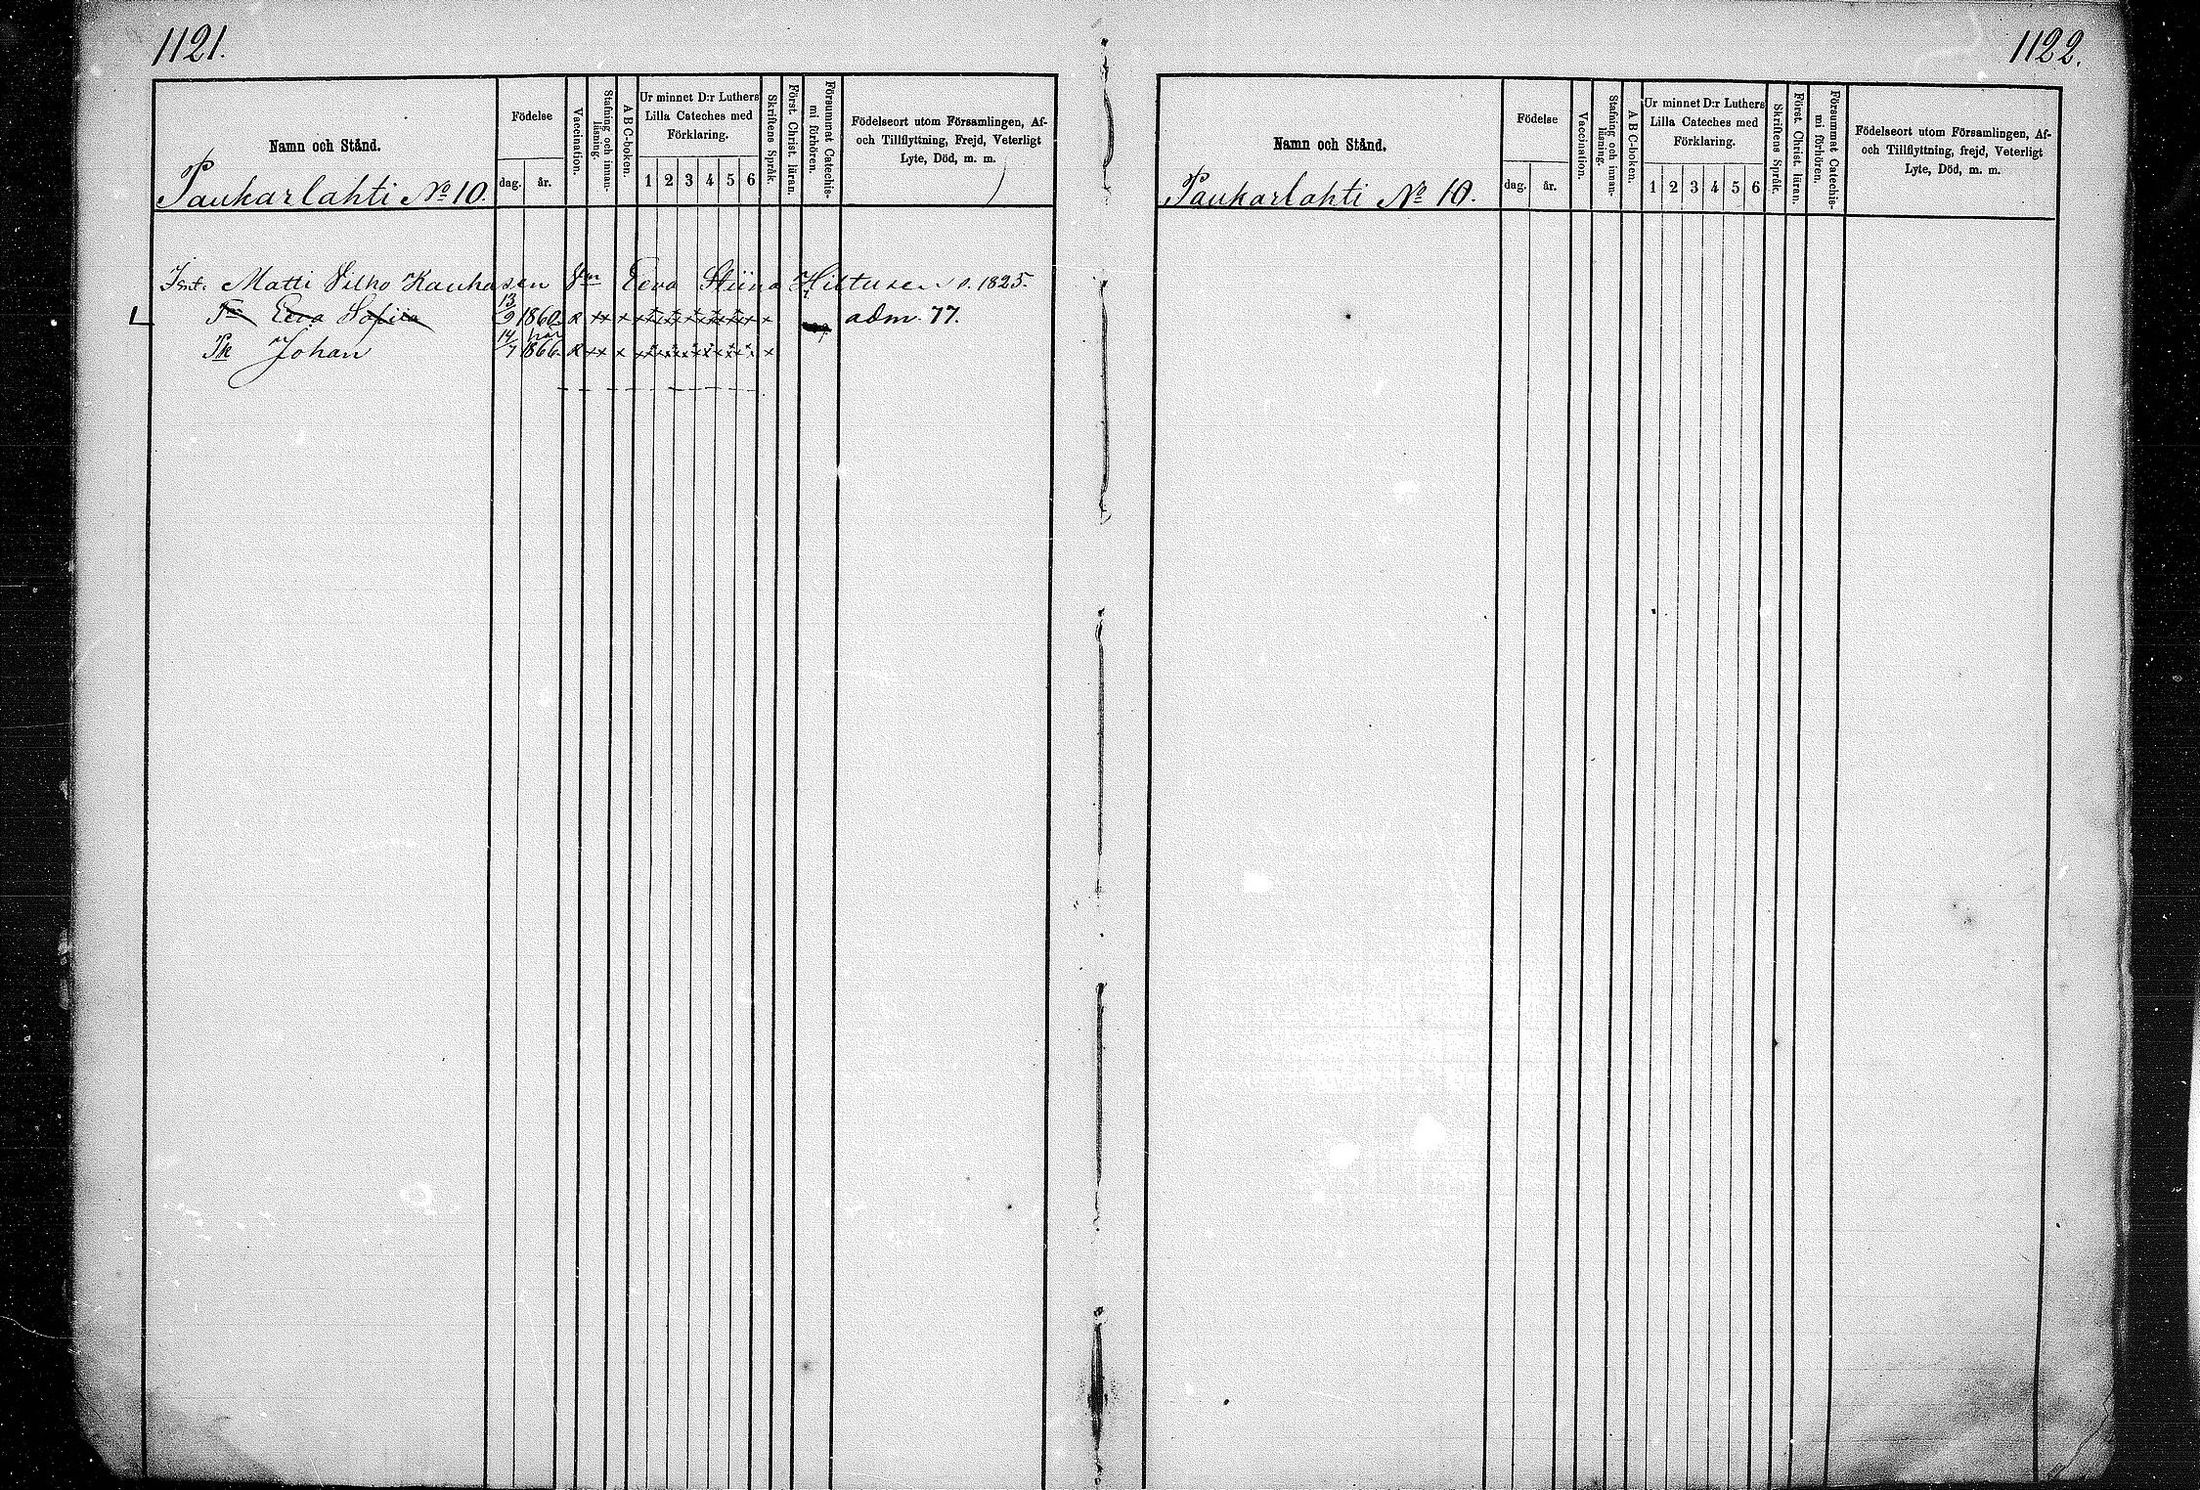 1121.
Namn och Stånd.
Födelse
dag.
år.
Vaccination.
Stafning och innan-
läsning.
A B C-boken.
Ur minnet D:r Luthers
Lilla Cateches med
Förklaring.
1 2 3 4 5 6
Skriftens Språk.
Först. Christ. läran.
Försummat Catechis-
mi förhören.
Födelseort utom Församlingen, Af-
och Tillflyttning, Frejd, Veterligt
Lyte, Död, m. m.
Paukarlahti No 10.
Inh. Matti Vilho Kauhasen Eeva Stiina Hiltusen 1825.
Eeva Sofiia 13/9 1860 adm. 77.
Johan 14/7 1866
1122.
Namn och Stånd.
Födelse
dag.
år.
Vaccination.
Stafning och innan-
läsning.
A B C-boken.
Ur minnet D:r Luthers
Lilla Cateches med
Förklaring.
1 2 3 4 5 6
Skriftens Språk.
Först. Christ. läran.
Försummat Catechis-
mi förhören.
Födelseort utom Församlingen, Af-
och Tillflyttning, frejd, Veterligt
Lyte, Död, m. m.
Paukarlahti No 10.